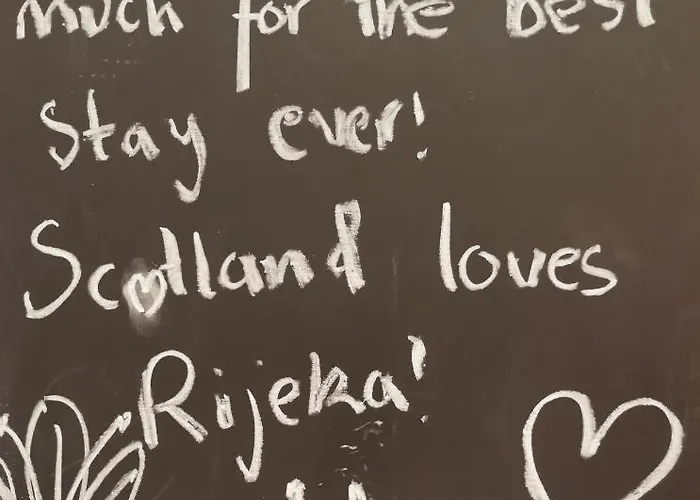 much for the best
Stay ever!
Scotland loves
Rijeka!